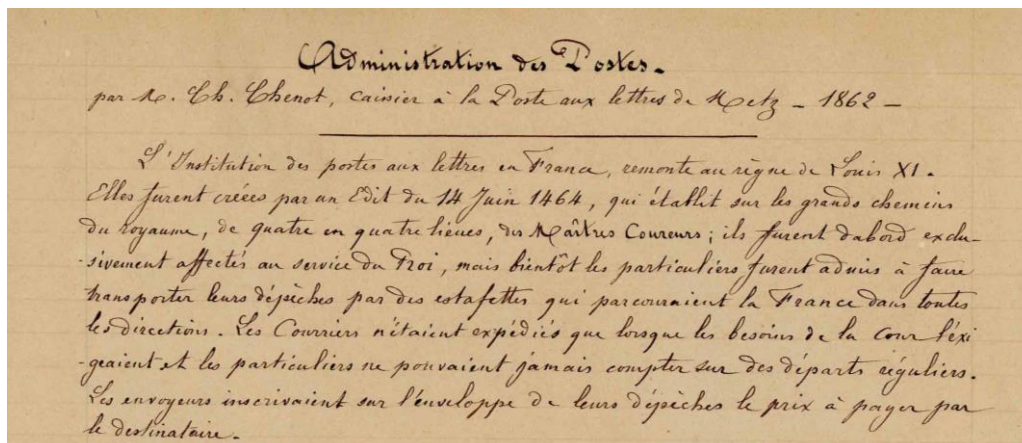 Administration des Postes.
par M. Ch. Chenot, caissier à la Poste aux lettres de Metz - 1862 -
L'Institution des postes aux lettres en France, remonte au règne de Louis XI.
Elles furent créées par un Edit du 14 Juin 1464, qui établit sur les grands chemins
du royaume, de quatre en quatre lieues, des Maîtres Coureurs; ils furent d'abord exclu-
-sivement affectés au service du Roi, mais bientôt les particuliers furent admis à faire
transporter leurs dépêches par des estafettes qui parcouraient la France dans toutes
les directions. Les Courriers n'étaient expédiés que lorsque les besoins de la cour l'exi
-geaient et les particuliers ne pouvaient jamais compter sur des départs réguliers.
Les envoyeurs inscrivaient sur l'enveloppe de leurs dépêches le prix à payer par
le destinataire.